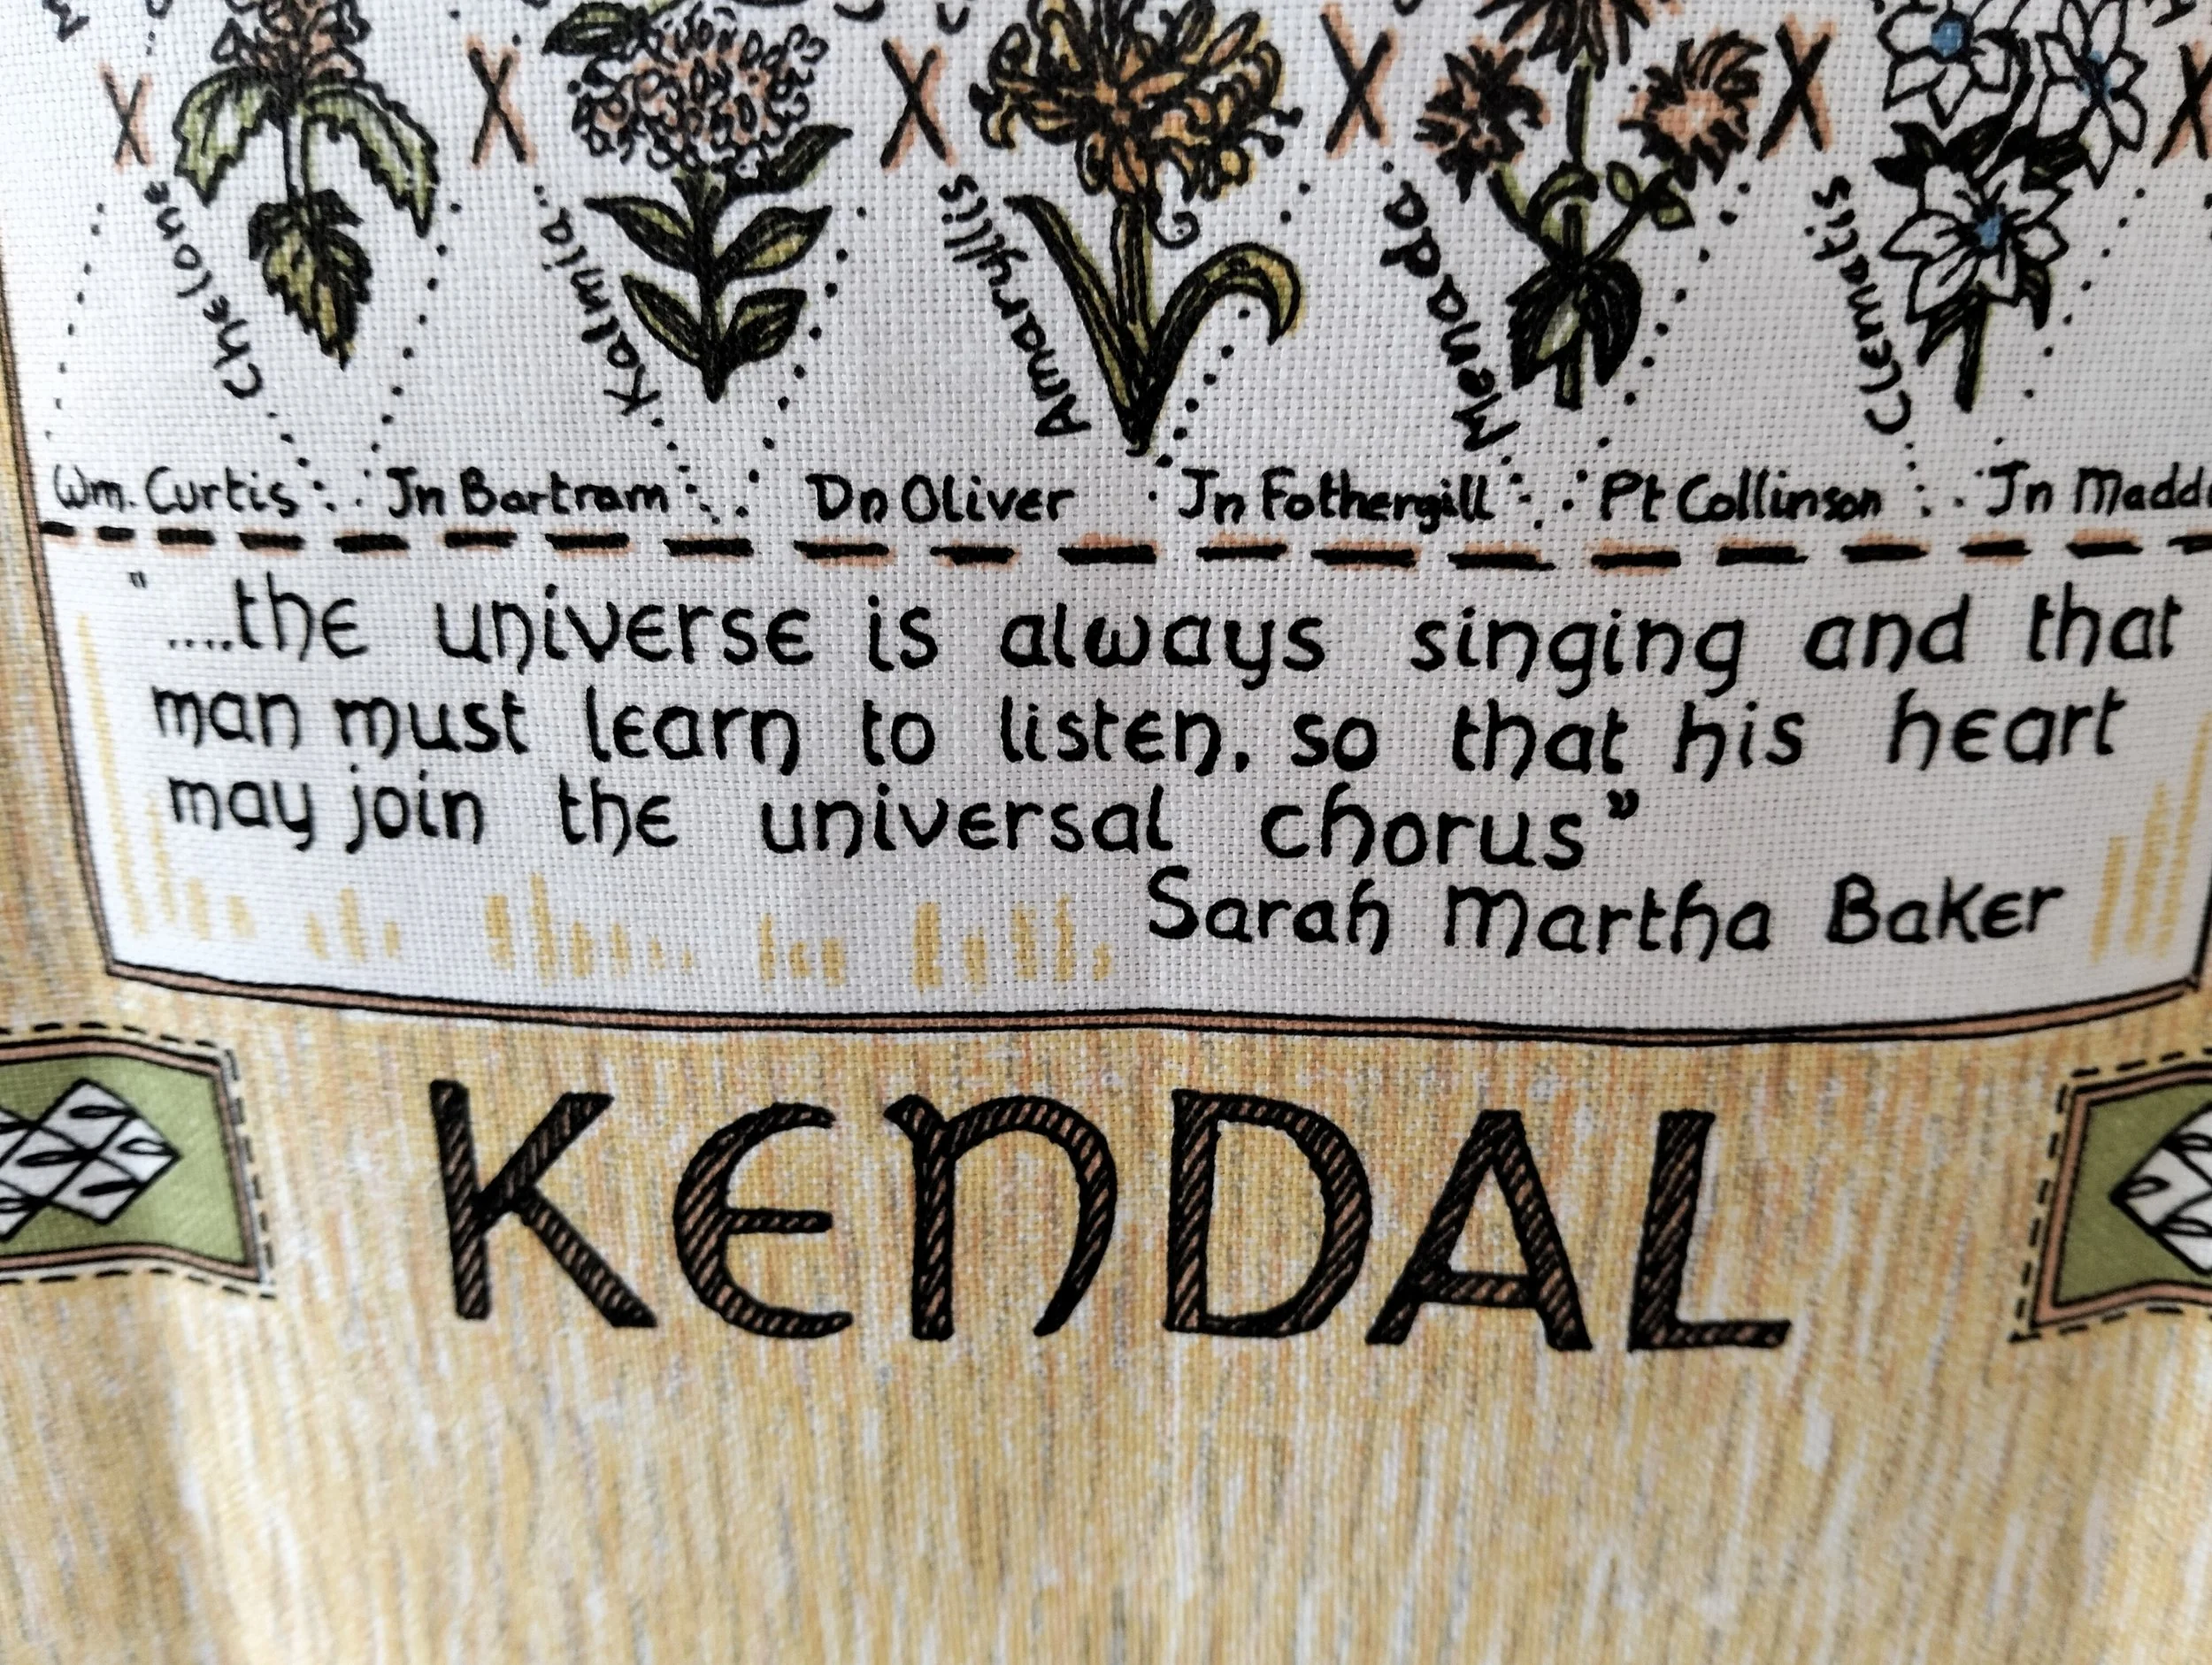 Chelone
Kalmia
Amaryllis
Menada
Clematis
Wm. Curtis
Jn Bartram
Dn Oliver
Jn Fothergill
Pt Collinson
Jn
"....the universe is always singing and that
man must learn to listen, so that his heart
may join the universal chorus”
Sarah Martha Baker
KENDAL